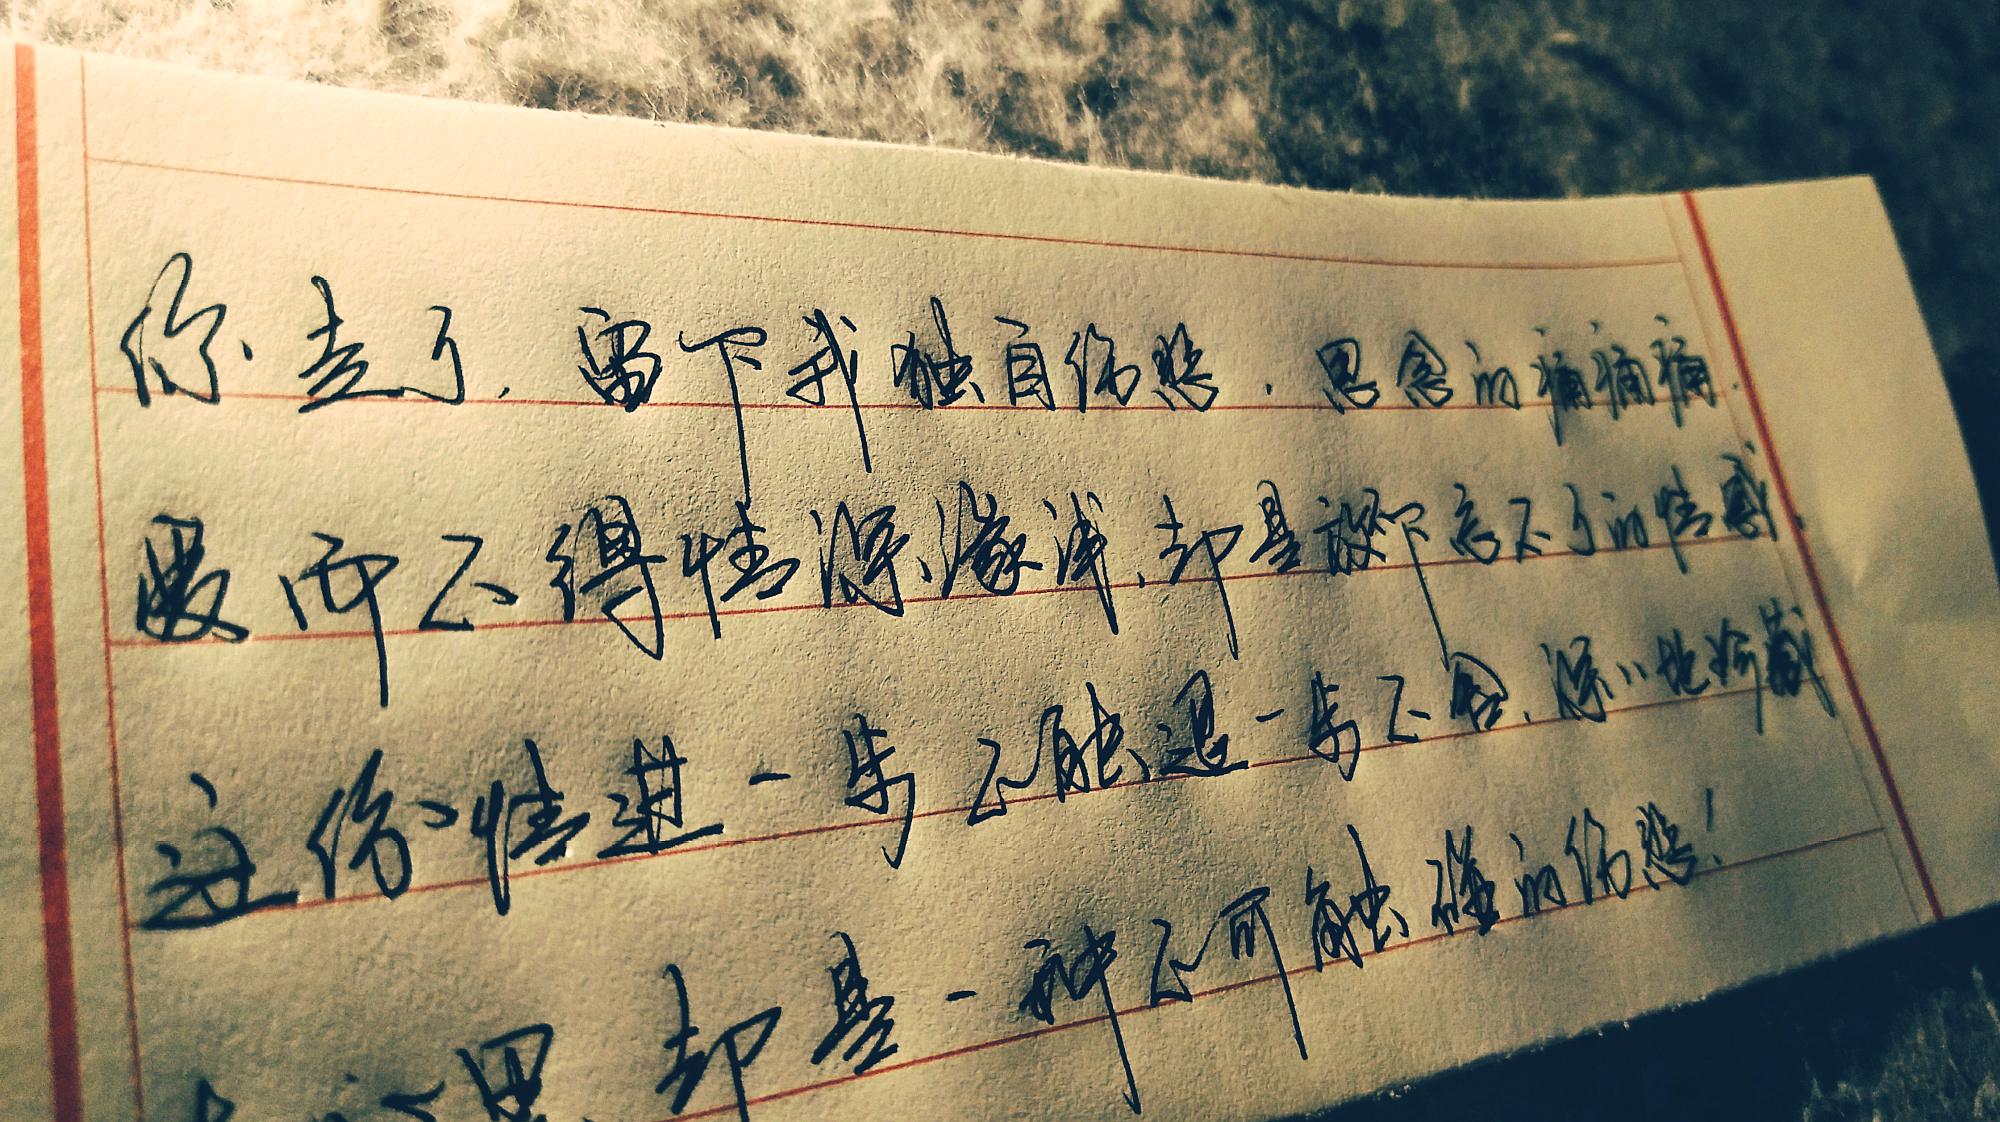 你走了，留下我独自伤愁。思念的痛痛痛，
爱而不得情深缘浅，却是放下忘不了的情感，
这份情进一步不能退一步不舍，深〃地珍藏
在心里，却是一种不可触碰的伤愁！